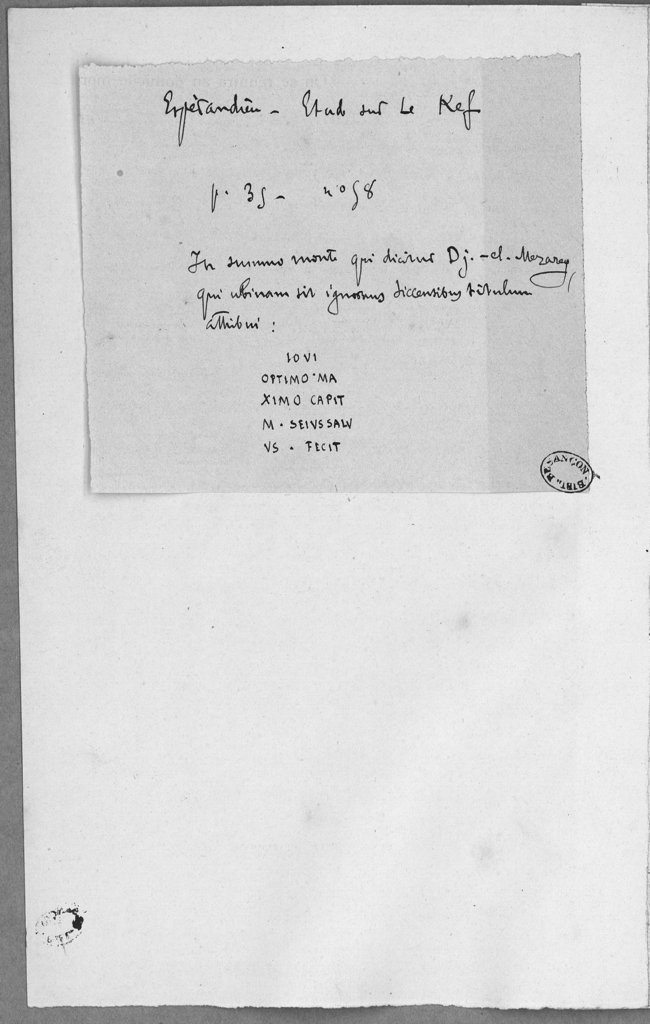 Espérandieu - Etude sur Le Kef
p. 35 - n° 58
In summo monte qui dicitur Dj.-el-Mezareg,
qui ubinam sit ignoramus Siccensibus titulum
attribui :
IOVI
OPTIMO·MA
XIMO CAPIT
M · SEIVS SALV
VS · FECIT
BESANÇON · BIBL.